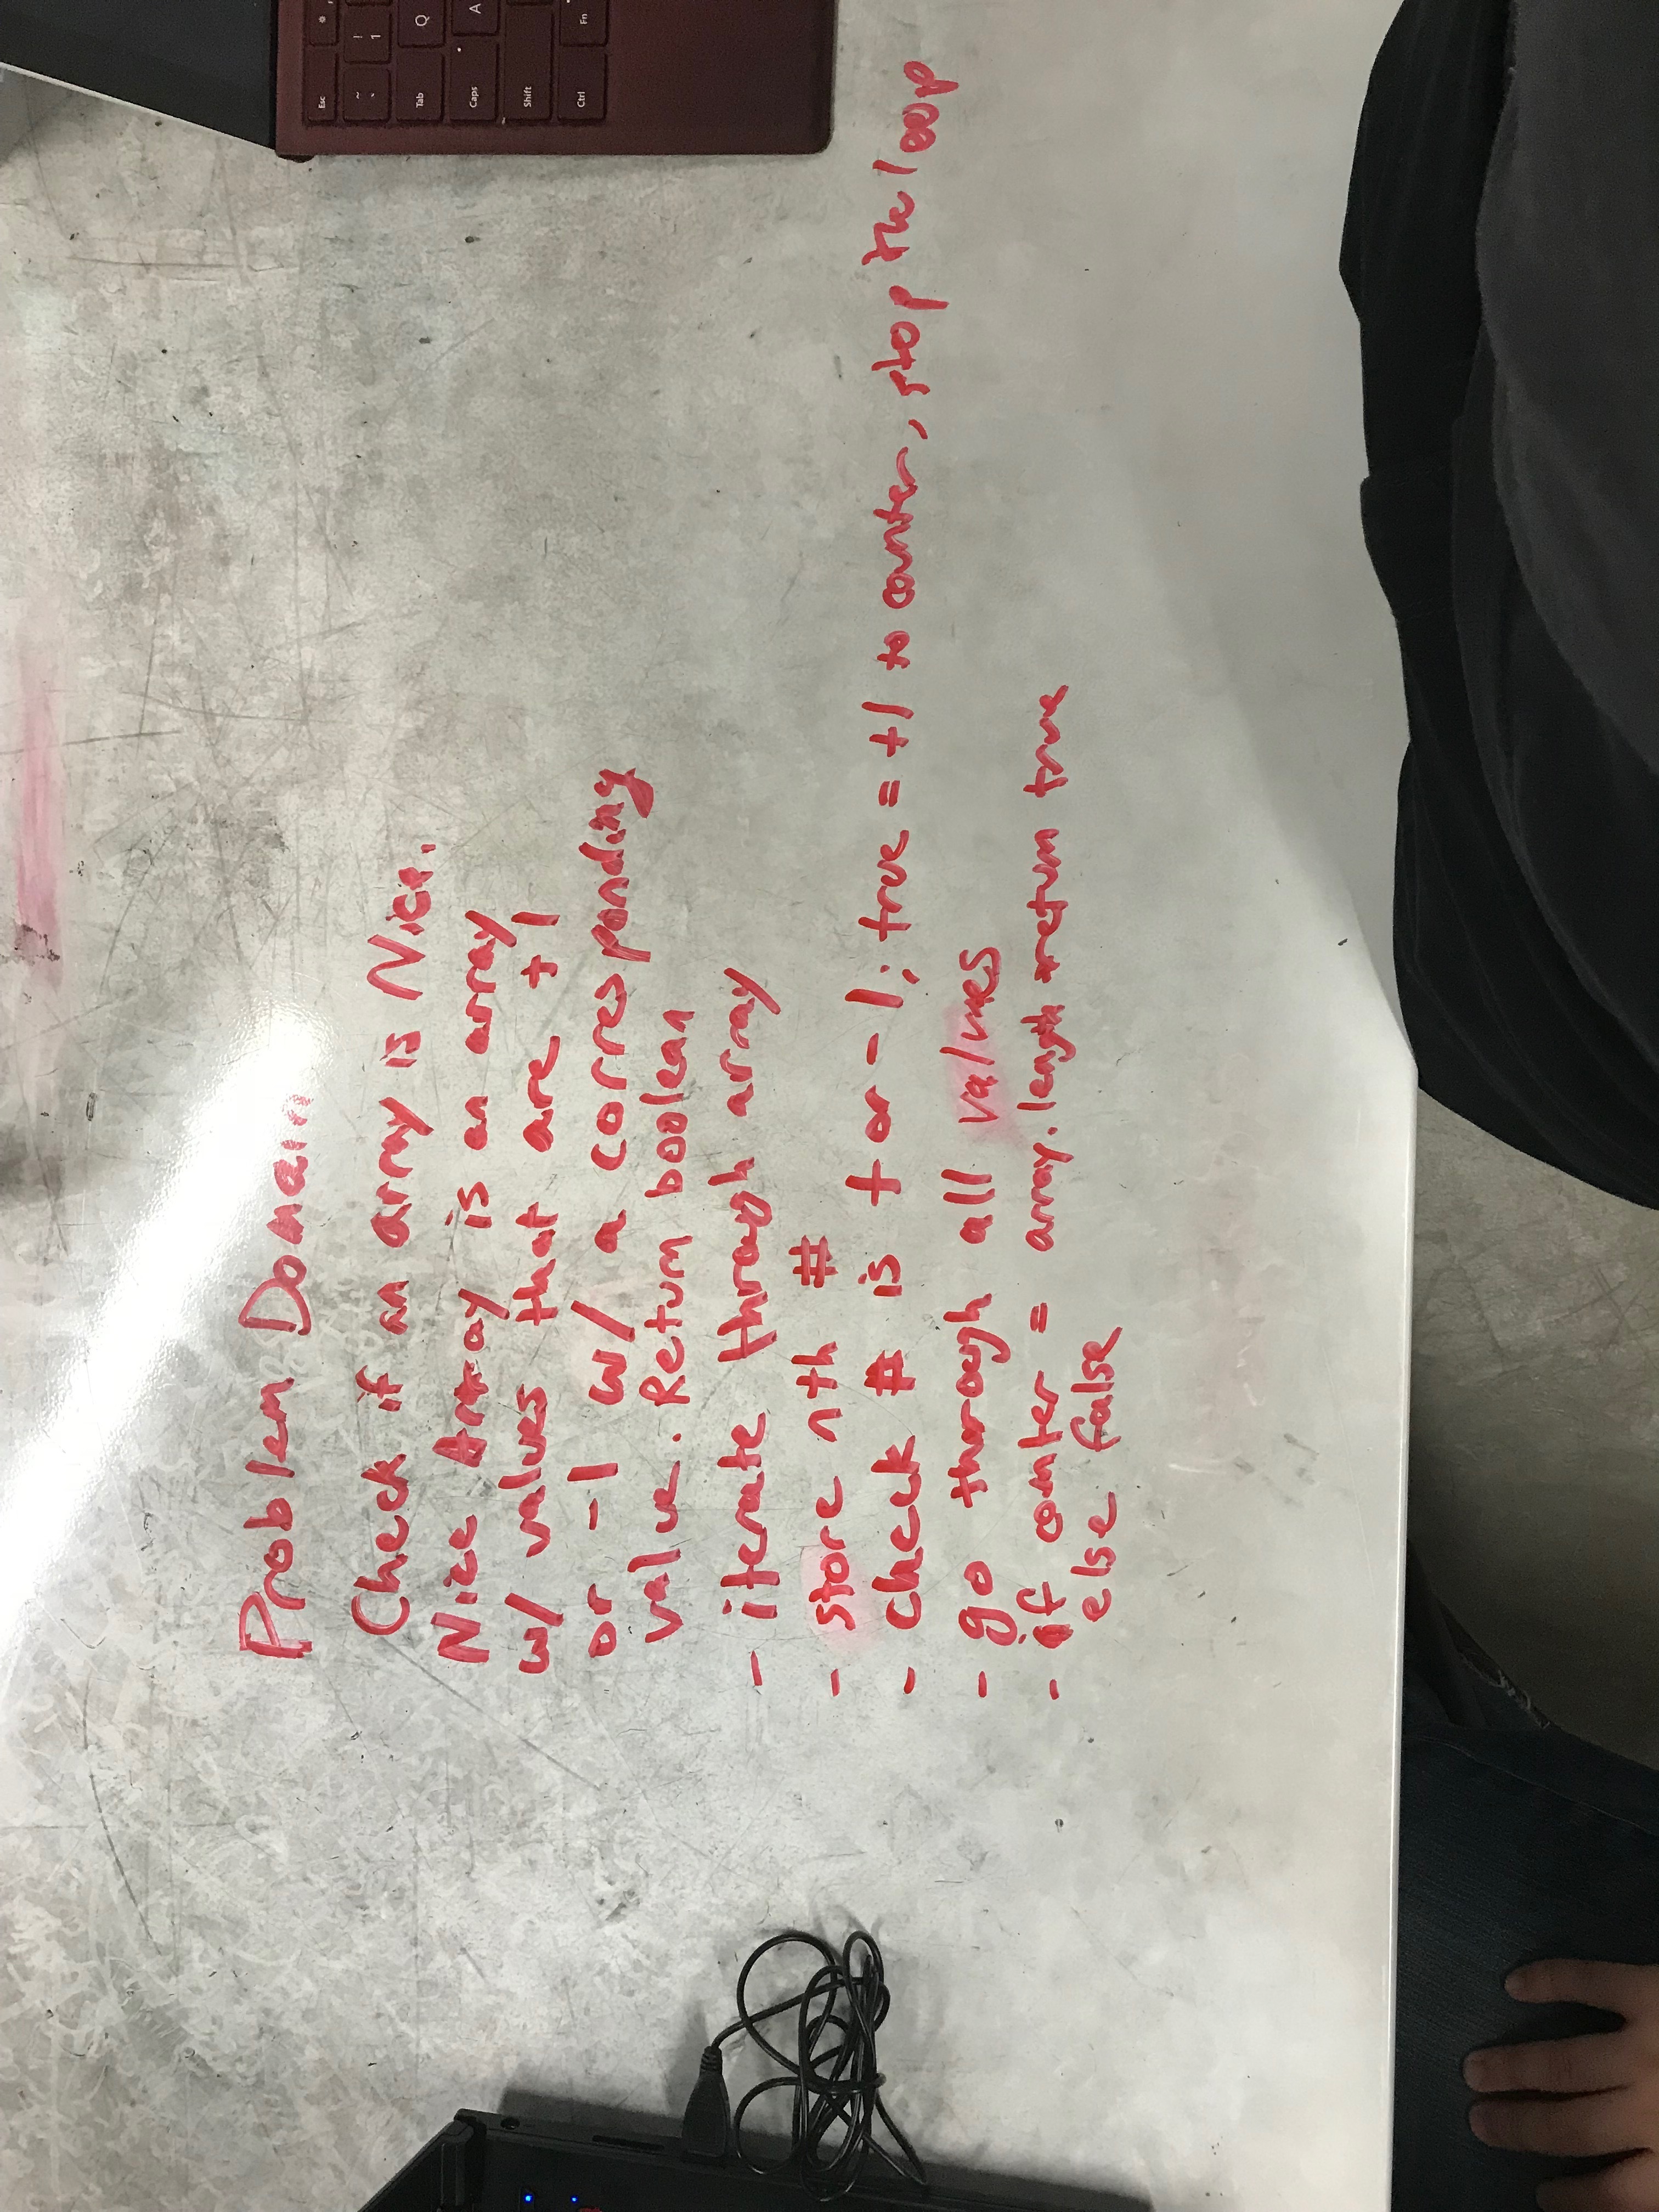 Problem Domain
Check if an array is Nice.
Nice Array is an array
w/ values that are +1
or -1 w/ a corresponding
value. Return boolean
- iterate through array
- store nth #
- check # is + or -1; true = +1 to counter, stop the loop
- go through all values
- if counter = array.length return true
else false
Esc
~ ! 1
`
Tab Q
Caps A
Shift
Ctrl Fn